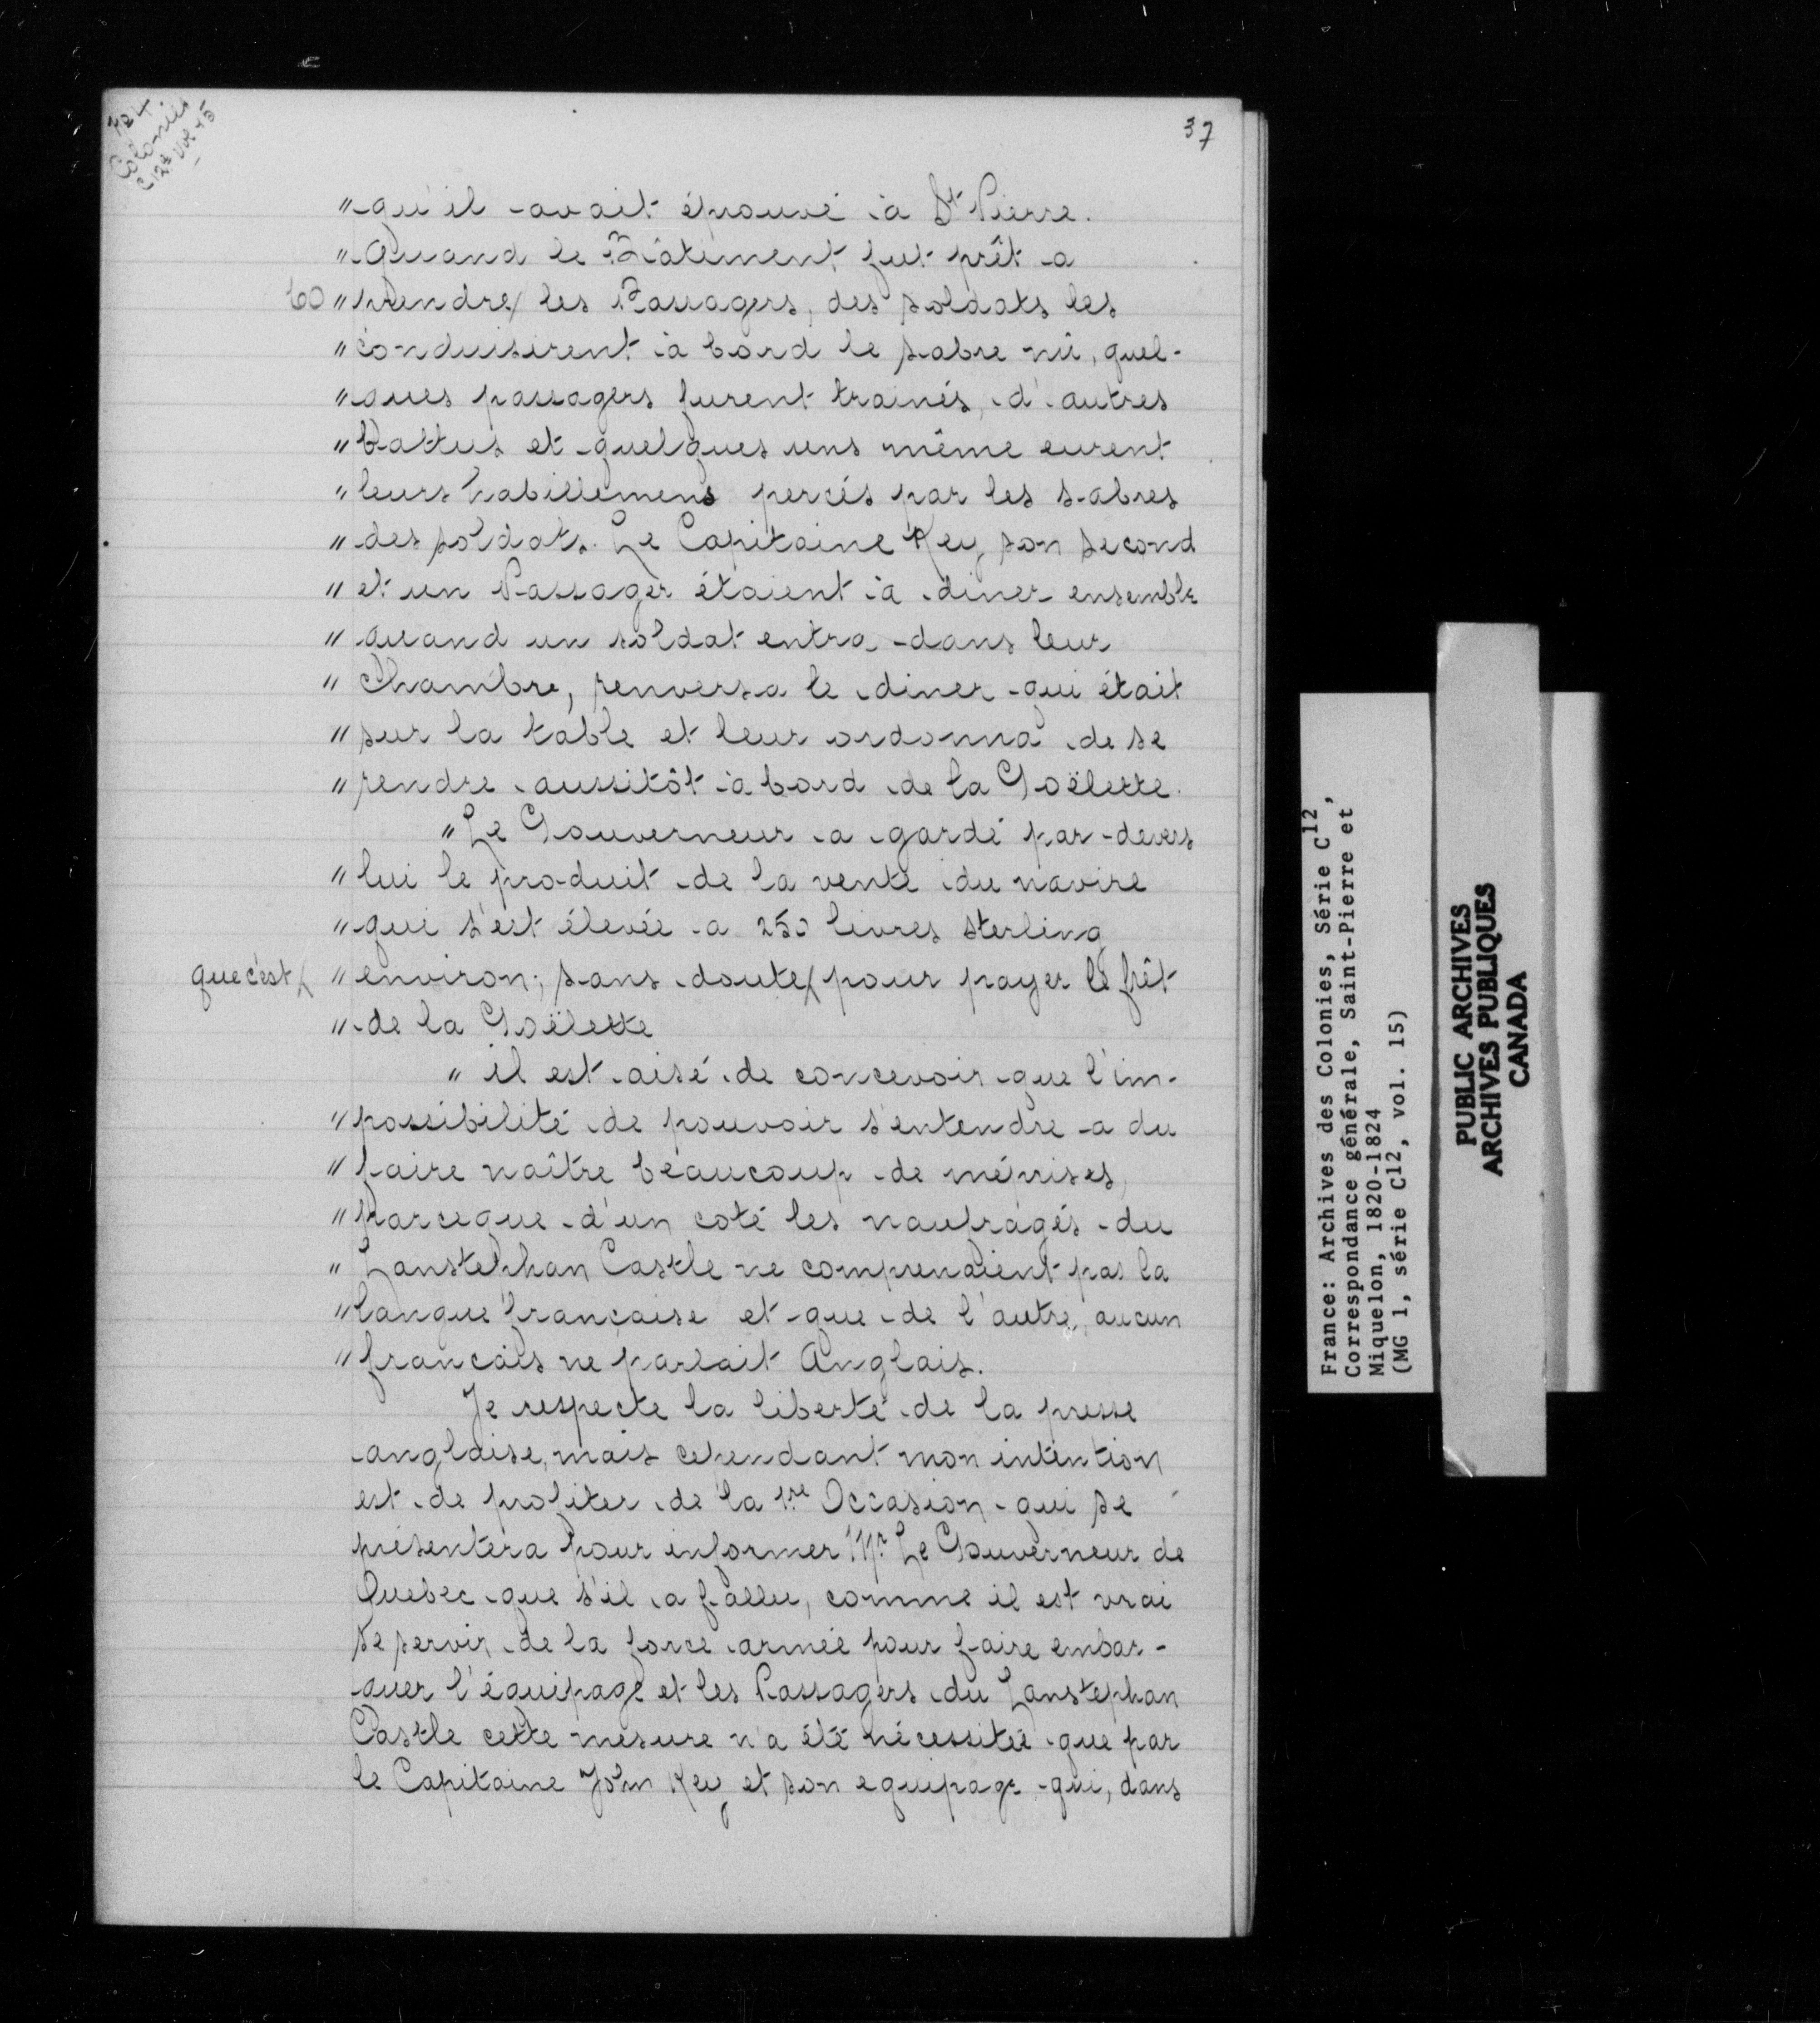 37
Colonies
"qu'il avait éprouvé à St Pierre.
"Quand le Bâtiment fut prêt a
60 "prendre/ les Passagers, des soldats les
"conduisirent à bord le sabre nû, quel-
"ques passagers furent trainés, d'autres
"battus et quelques uns même eurent
"leurs habillemens percés par les sabres
"des soldats. Le Capitaine Key, son second
"et un Passager étaient à diner ensemble
"quand un soldat entra dans leur
"Chambre, renversa le diner qui était
"sur la table et leur ordonna de se
"rendre aussitôt à bord de la Goëlette.
"Le Gouverneur a gardé par-devers
"lui le produit de la vente du navire
"qui s'est élevée a 250 livres sterling
que c'est/ "environ; sans doute/ pour payer le frêt
"de la Goëlette
"il est aisé de concevoir que l'im-
"possibilité de pouvoir s'entendre a du
"faire naître beaucoup de méprises,
"parceque d'un coté les naufragés du
"Lanstephan Castle ne comprenaient pas la
"langue française et que de l'autre, aucun
"francais ne parlait Anglais.
Je respecte la liberté de la presse
anglaise, mais cependant mon intention
est de profiter de la 1re Occasion qui se
présentera pour informer Mr. Le Gouverneur de
Quebec que s'il a fallu, comme il est vrai
se servir de la force armée pour faire embar-
quer l'équipage et les Passagers du Lanstephan
Castle cette mesure n'a été nécessitée que par
le Capitaine John Key et son equipage qui, dans
France: Archives des Colonies, Série C12,
Correspondance générale, Saint-Pierre et
Miquelon, 1820-1824
(MG 1, série C12, vol. 15)
PUBLIC ARCHIVES
ARCHIVES PUBLIQUES
CANADA